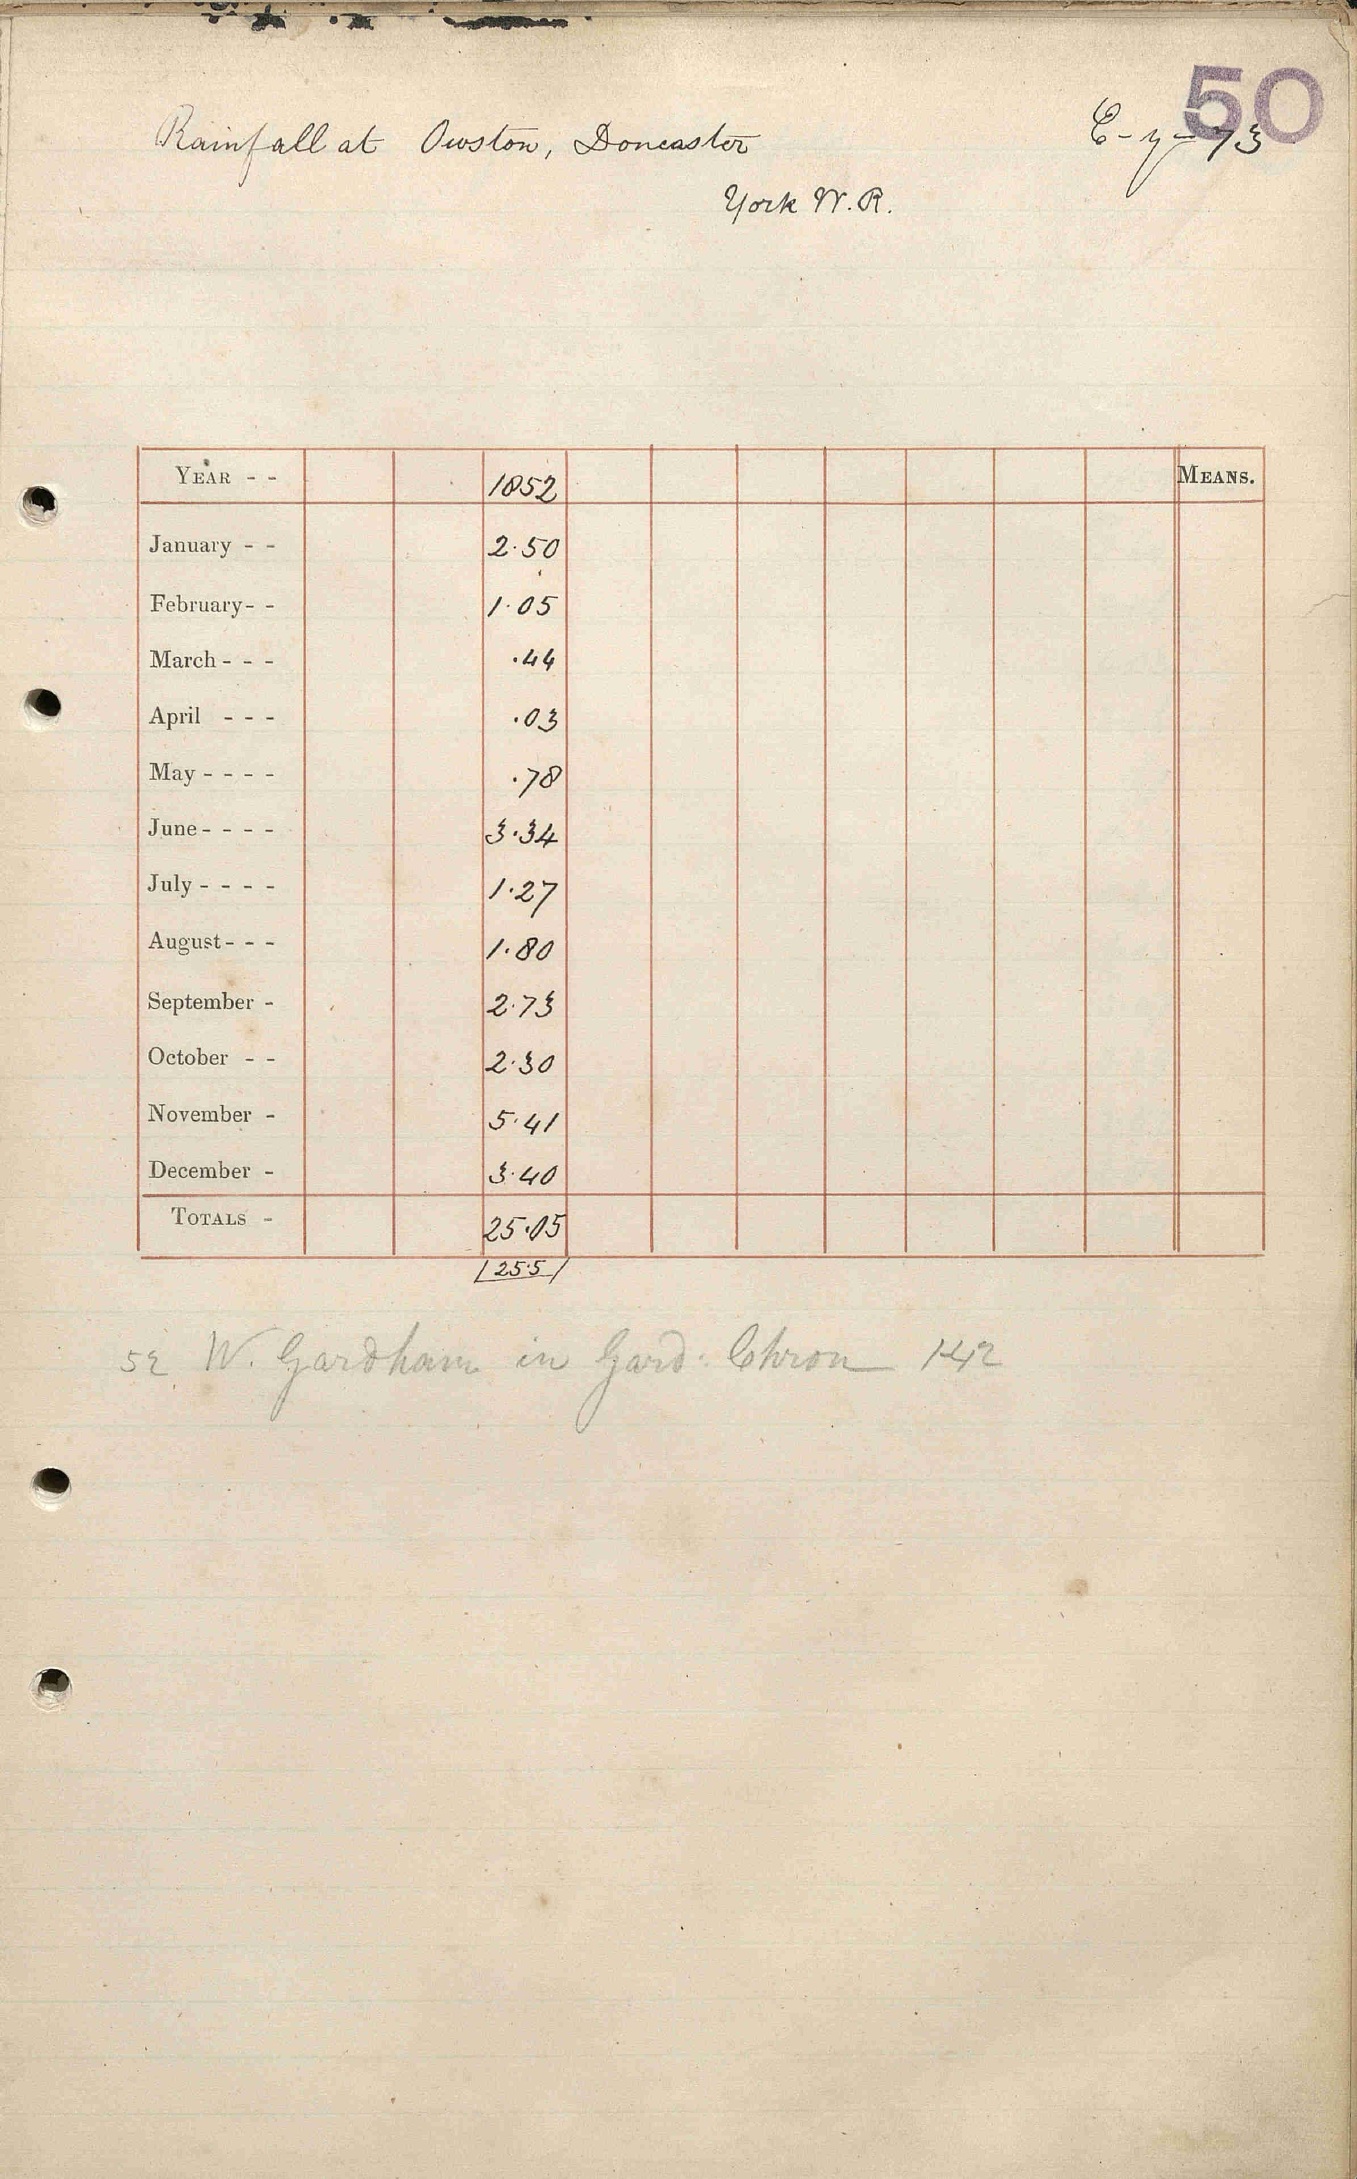 50
Rainfall at Owston, Doncaster E-y-73
York W.R.
YEAR - - 1852 MEANS.
January - - 2.50
February - - 1.05
March - - - .44
April - - - .03
May - - - - .78
June - - - - 3.34
July - - - - 1.27
August - - - 1.80
September - 2.73
October - - 2.30
November - 5.41
December - 3.40
TOTALS - 25.05
25.5
52 W. Gardham in Gard: Chron 142